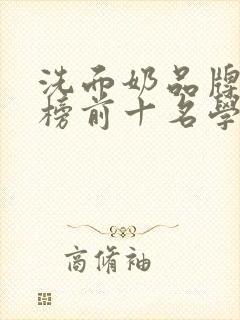 洗面奶品牌
榜前十名學
商脩袖